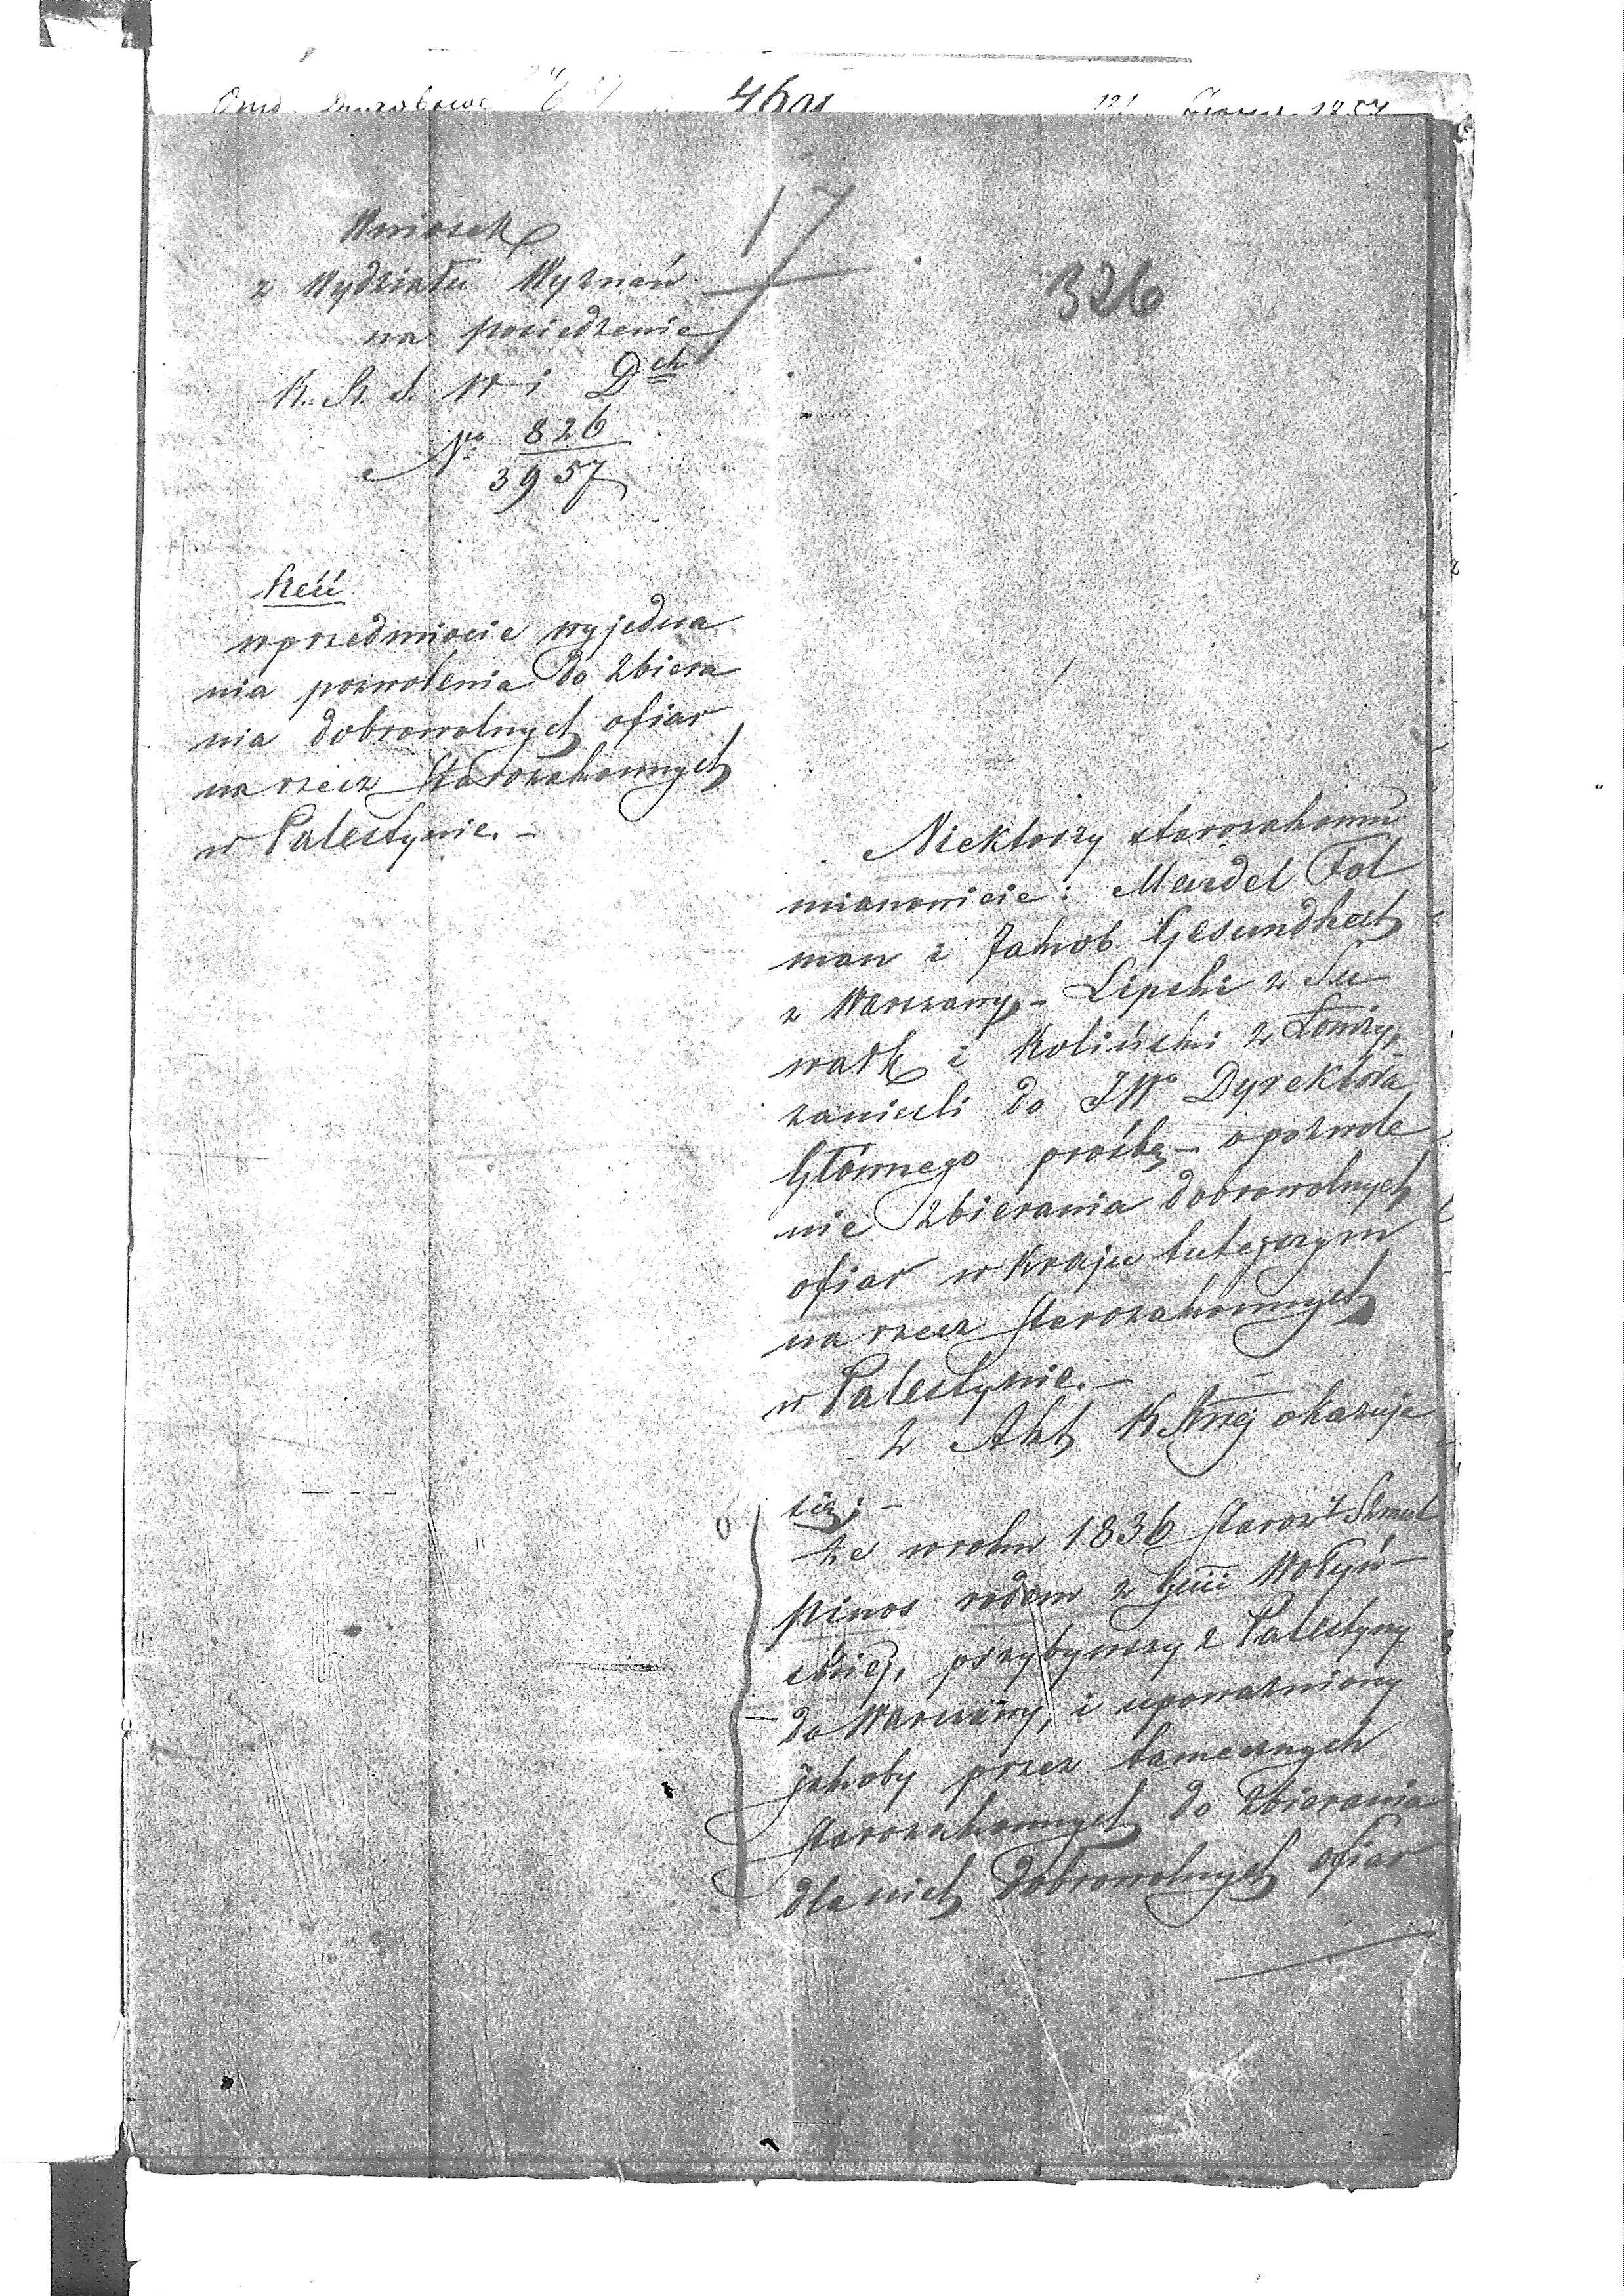 46
17
326
Wniosek
z Wydziału Wyznań
na posiedzenie
K. R. S. W i Dch
No 826
3957
Treść
w przedmiocie wyjedna
nia pozwolenia do zbiera
nia dobrowolnych ofiar
na rzecz Starozakonnych
w Palestynie. -
Niektórzy starozakonni
mianowicie: Mardel Fol
man i Jakob Gesundheit
z Warszawy, - Lipski z Su
wałk i Koliński z Łomży,
zanieśli do JWo Dyrektora
Głównego prośbę - o pozwole
nie zbierania dobrowolnych
ofiar w Kraju tutejszym
na rzecz Starozakonnych
w Palestynie. -
Z Akt K okazuje
się; -
że w roku 1836 Staroz. Szmul
pinos rodem z Gnii Wołyń-
skiej, przybywszy z Palestyny
do Warszawy, i upoważniony
jakoby przez tamecznych
Starozakonnych do zbierania
dla nich dobrowolnych ofiar